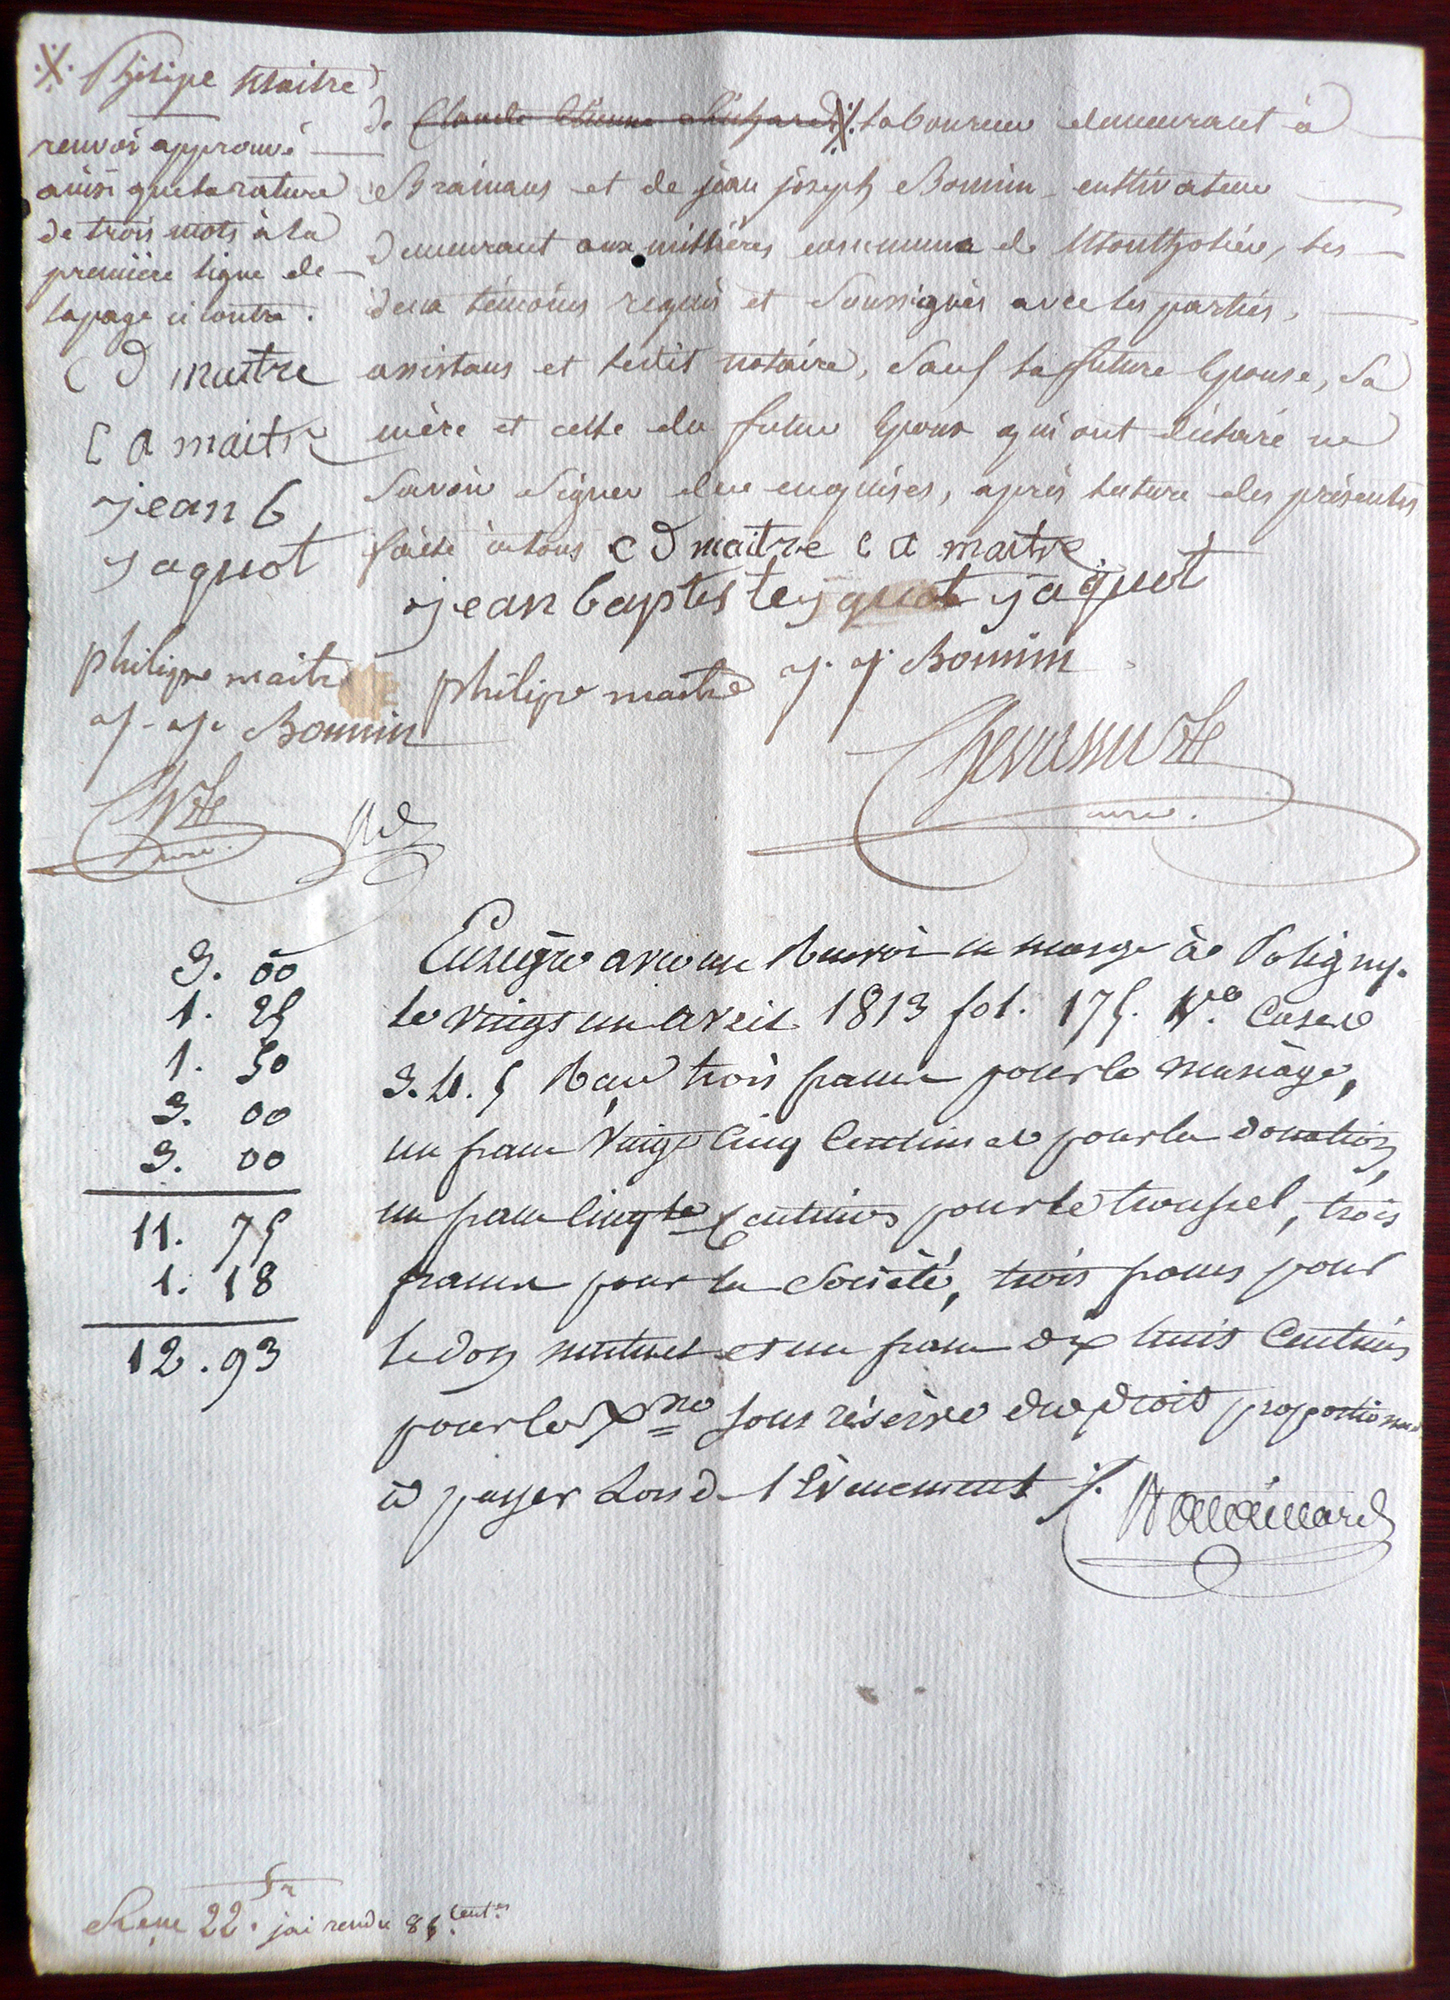 ·X· Philipe Maitre
renvoi approuvé
ainsi que la rature
de trois mots à la
première ligne de
la page ci contre.
C D maitre
C A maitre
jean b
jaquot
philipe maitre
j. j. Bonnin
de Claude Etienne ·X· laboureur demeurant à
Brainans et de jean joseph Bonnin cultivateur
demeurant aux millières commune de Montholier, les
deux témoins requis et soussignés avec les parties,
assistans et ledit notaire, sauf la future Epouse, sa
mère et celle du futur Epoux qui ont déclaré ne
savoir signer de ce enquises, après lecture des présentes
faite à tous C D maitre C A maitre
jean baptiste jaquot jaquot
philipe maitre j. j. Bonnin
3. 00
1. 25
1. 50
3. 00
3. 00
11. 75
1. 18
12. 93
Enregtré avec un Renvoi en marge à Poligny.
le vingt un avril 1813 fol. 175. Vo. Cases
3. 4. 5 Reçu trois francs pour le mariage,
un franc vingt Cinq Centimes pour la donation,
un franc Cinqte Centimes pour le troussel, trois
francs pour la Société, trois francs pour
le don mutuel et un franc dix huit Centimes
pour le Xme sous réserve du droit proportionnel
à payer Lors de l'Evenement
Reçu 22 fr. jai rendu 85 cent.es